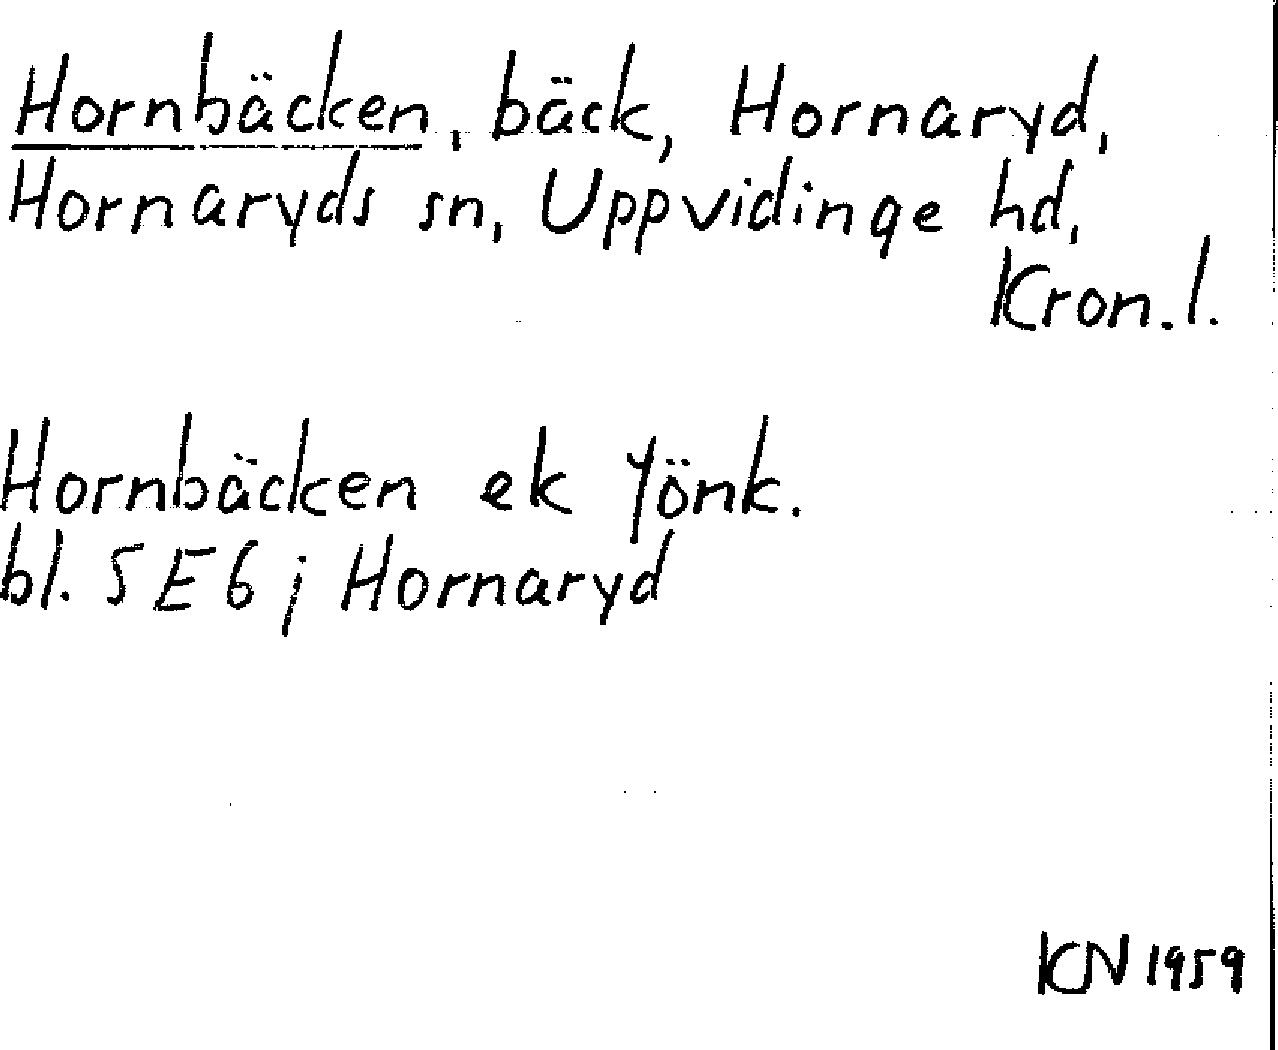 Hornbäcken, bäck, Hornaryd,
Hornaryds sn, Uppvidinge hd,
Kron.l.
Hornbäcken ek Jönk.
bl. 5 E 6 ; Hornaryd
KN 1959